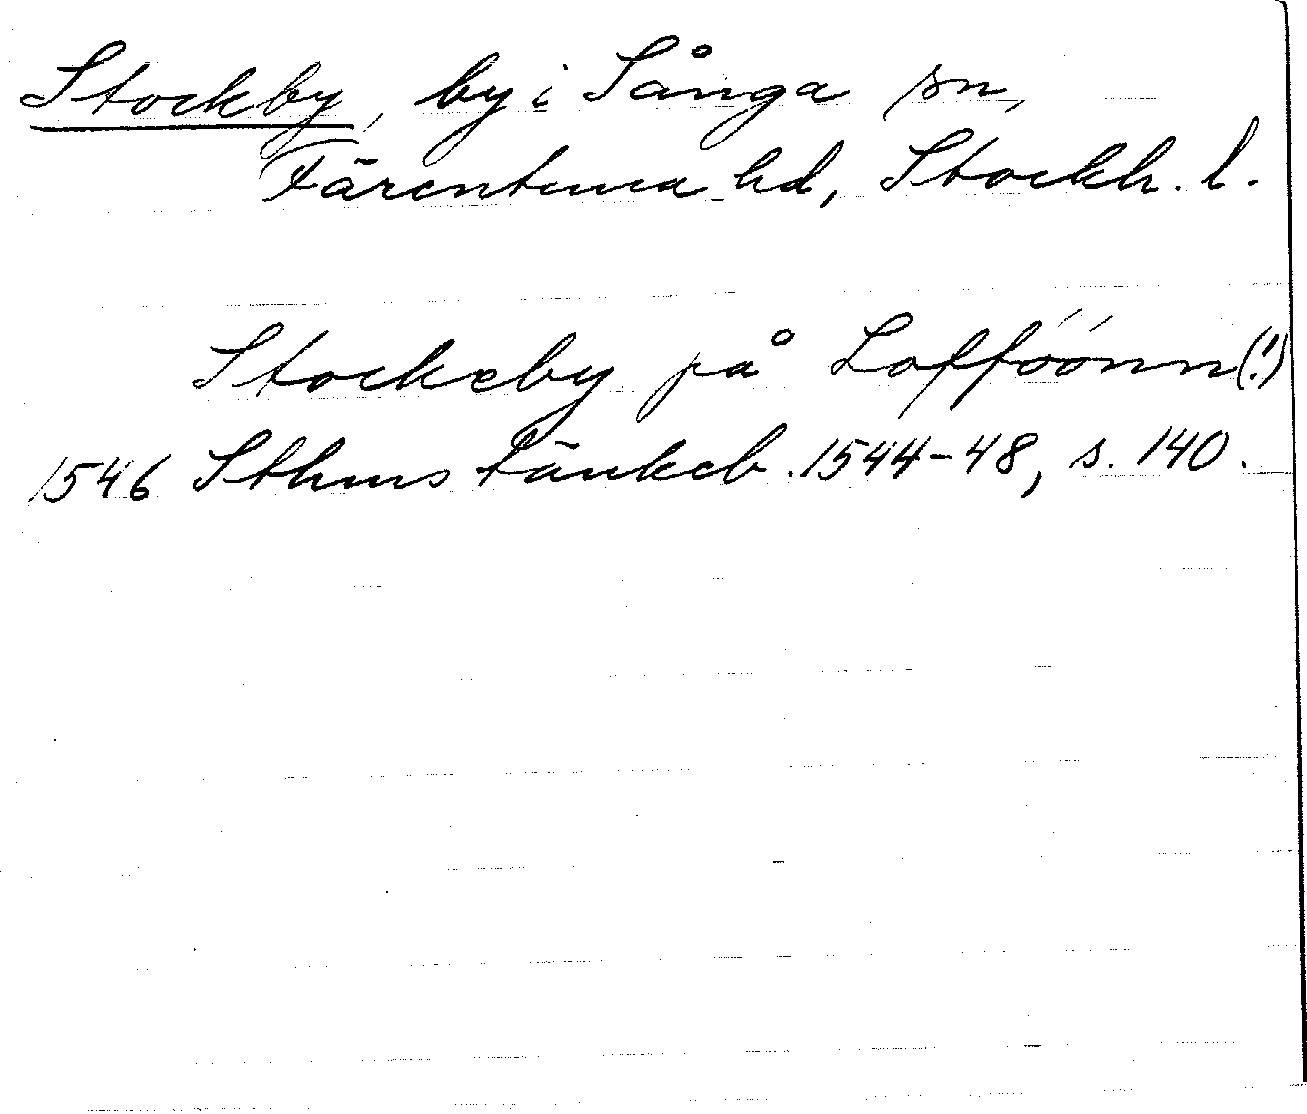 Stockby, by i Sånga sn,
Färentuna hd, Stockh. l.
Stockeby på Loffóónn (!)
1546 Sthms tänkeb. 1544-48, s. 140.